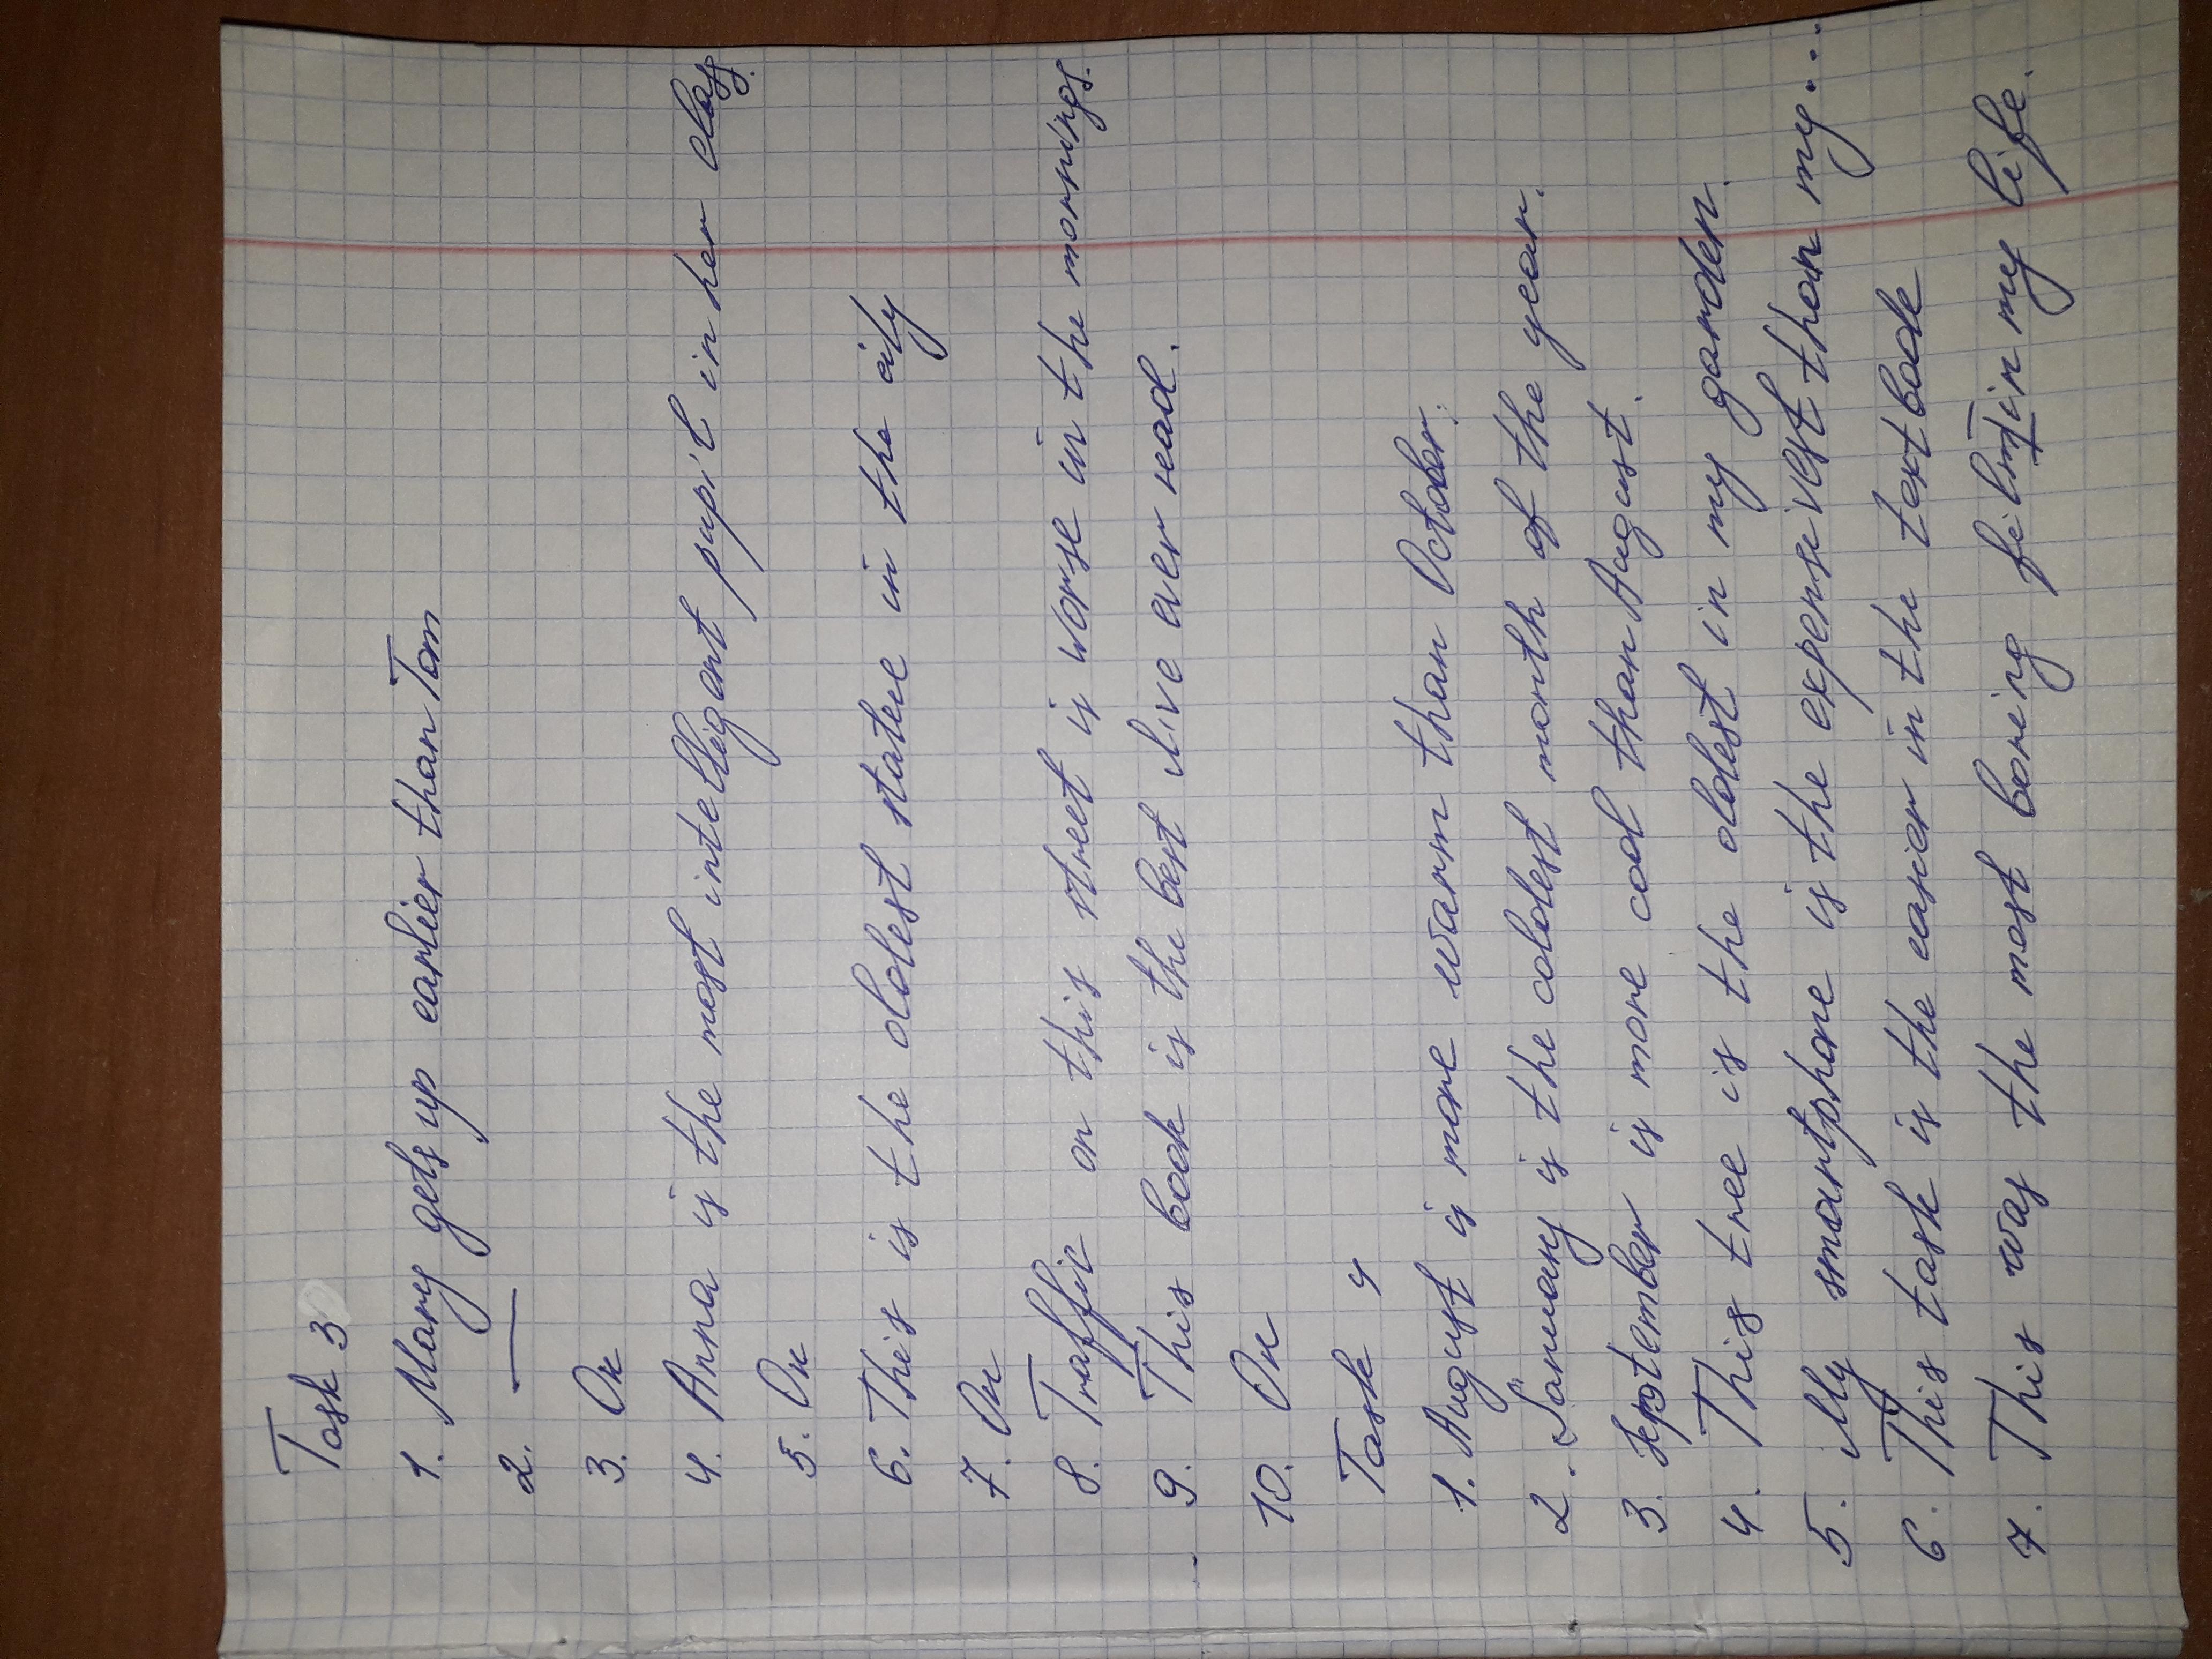 Task 3
1. Mary gets up earlier than Tom
2. —
3. Ok
4. Anna is the most intelligent pupil in her class.
5. Ok
6. This is the oldest statue in the city
7. Ok
8. Traffic on this street is worse in the mornings.
9. This book is the best I've ever read.
10. Ok
Task 4
1. August is more warm than October.
2. January is the coldest month of the year.
3. September is more cool than August.
4. This tree is the oldest in my garden.
5. My smartphone is the expensivest than my...
6. This task is the easier in the textbook
7. This was the most boring film in my life.